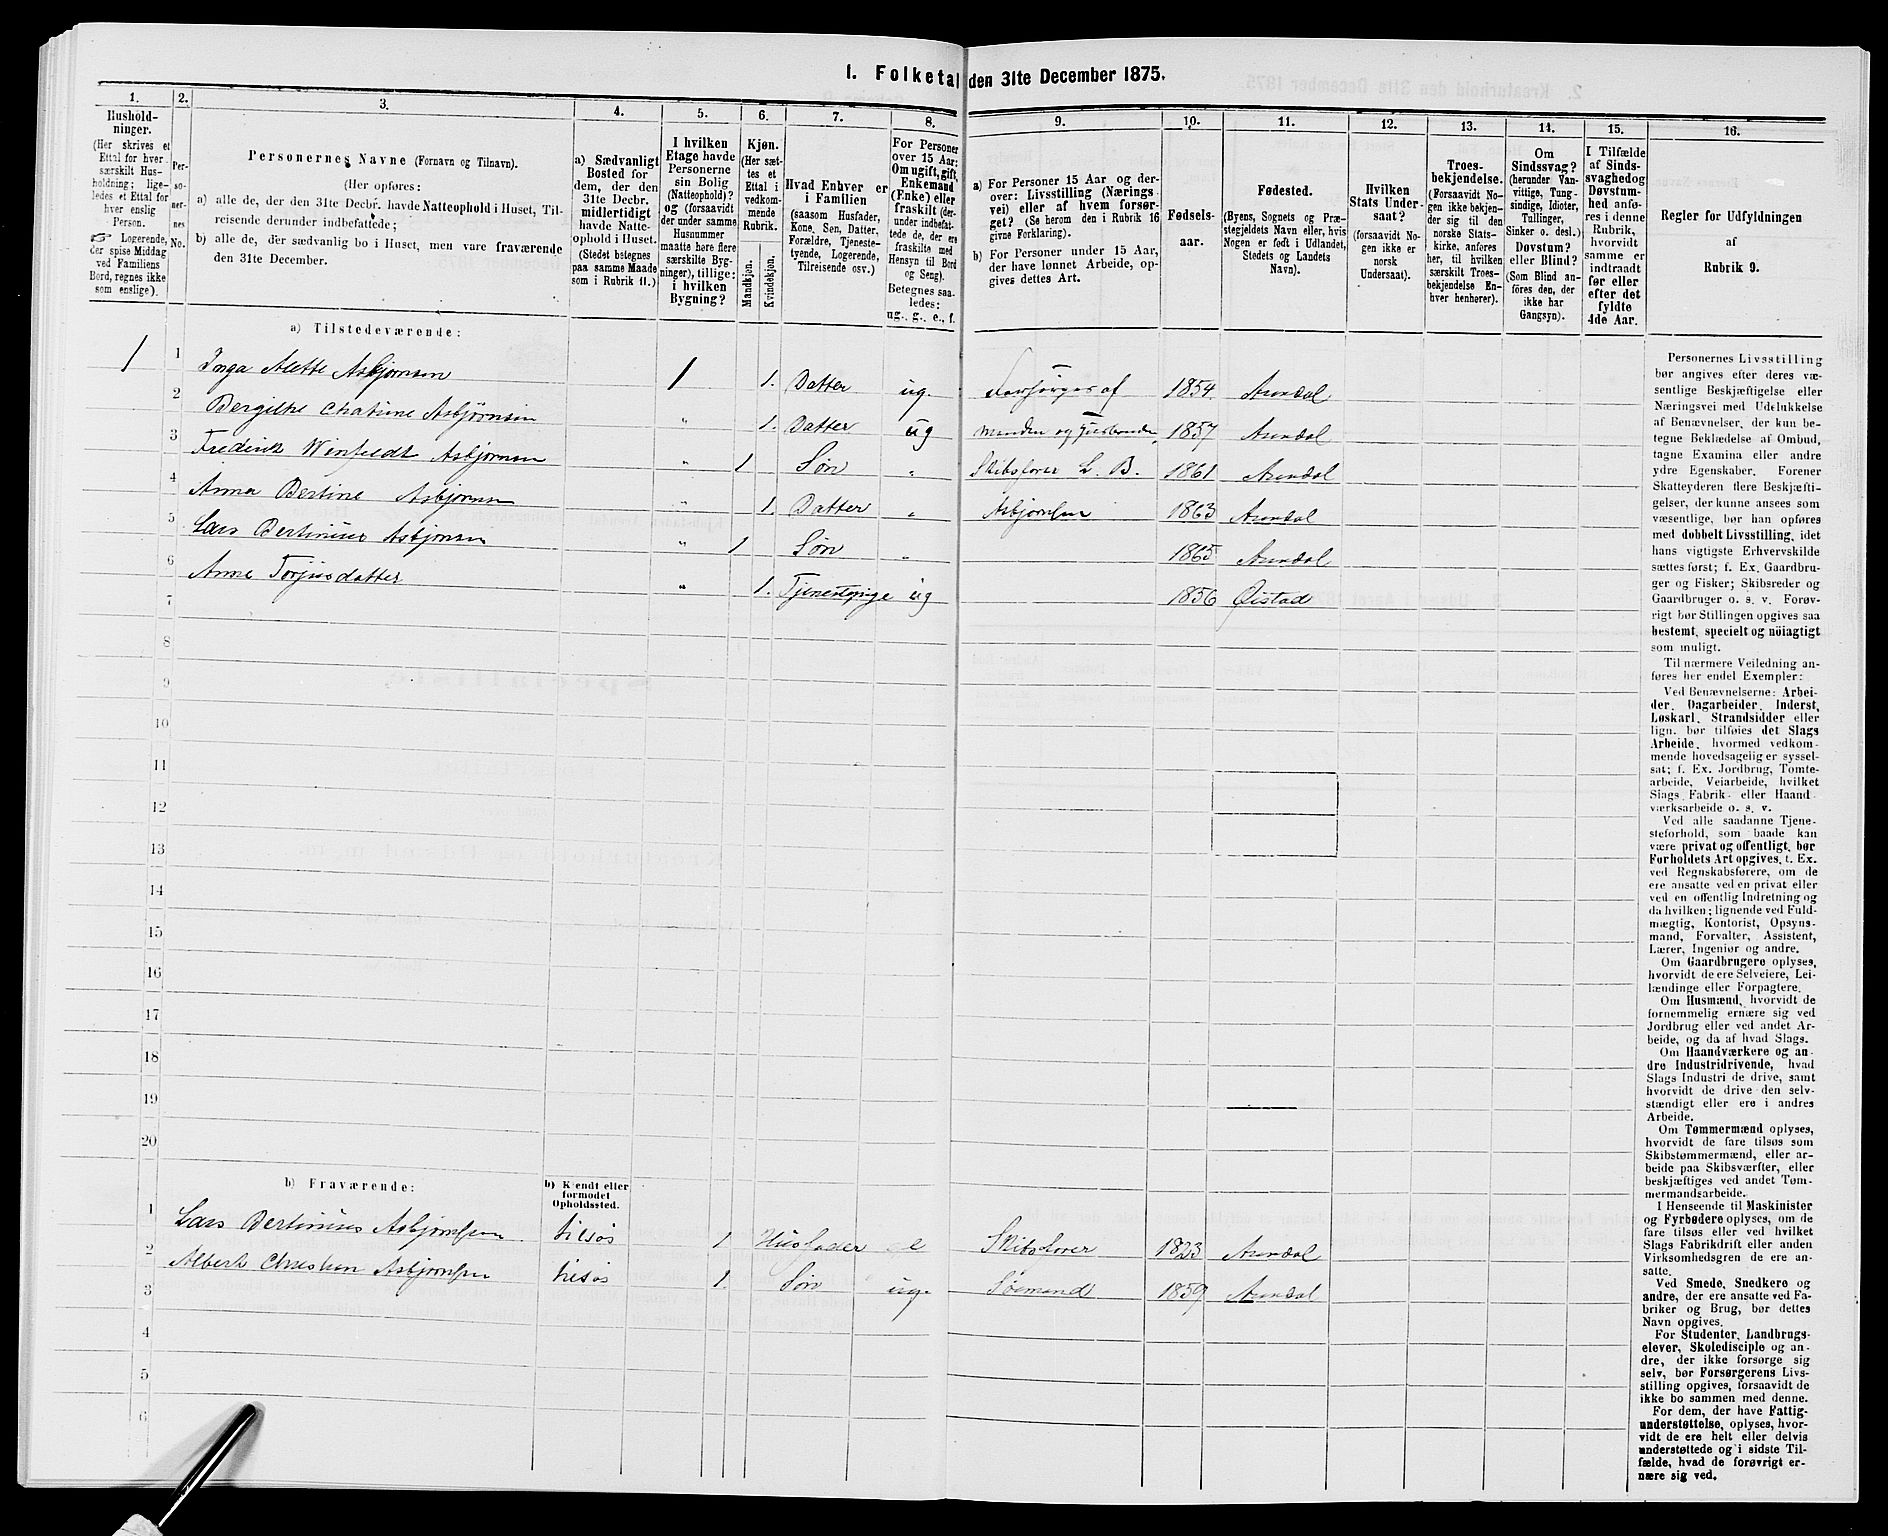 1. Folketal den 31te December 1875.
1.
2.
3.
4.
5.
6.
7.
8.
9.
10.
11.
12.
13.
14.
15.
16.
Hushold-
ninger.
(Her skrives et
Ettal for hver
særskilt Hus-
holdning; lige-
ledes et Ettal for
hver enslig
Person.
☞ Logerende,
der spise Middag
ved Familiens
Bord, regnes ikke
som enslige).
Per-
so-
ner-
nes
No.
Personernes Navne (Fornavn og Tilnavn).
(Her opføres:
a) alle de, der den 31te Decbr. havde Natteophold i Huset, Til-
reisende derunder indbefattede;
b) alle de, der sædvanlig bo i Huset, men vare fraværende
den 31te December.
a) Sædvanligt
Bosted for
dem, der den
31te Decbr.
midlertidigt
havde Natte-
ophold i Huset.
(Stedet betegnes
paa samme Maade
som i Rubrik 11.)
I hvilken
Etage havde
Personerne
sin Bolig
(Natteophold)?
og (forsaavidt
der under samme
Husnummer
maatte høre flere
særskilte Byg-
ninger), tillige:
i hvilken
Bygning?
Kjøn.
(Her sæt-
tes et
Ettal i
vedkom-
mende
Rubrik.
Mandkjøn.
Kvindekjøn.
Hvad Enhver er
i Familien
(saasom Husfader,
Kone, Søn, Datter,
Forældre, Tjeneste-
tyende, Logerende,
Tilreisende osv.)
For Personer
over 15 Aar:
Om ugift, gift,
Enkemand
(Enke) eller
fraskilt (der-
under indbefat-
tede de, der ere
fraskilte med
Hensyn til Bord
og Seng).
Betegnes saa-
ledes:
ug., g., e., f.
a) For Personer 15 Aar og der-
over: Livsstilling (Nærings-
vei) eller af hvem forsør-
get? (Se herom den i Rubrik 16
givne Forklaring).
b) For Personer under 15 Aar,
der have lønnet Arbeide, op-
gives dettes Art.
Fødsels-
aar.
Fødested.
(Byens, Sognets og Præ-
stegjeldets Navn eller, hvis
Nogen er født i Udlandet,
Stedets og Landets
Navn).
Hvilken
Stats Under-
saat?
(forsaavidt No-
gen ikke er
norsk
Undersaat).
Troes-
bekjendelse.
(Forsaavidt No-
gen ikke bekjen-
der sig til den
norske Stats-
kirke, anføres
her, til hvilken
særskilt Troes-
bekjendelse En-
hver henhører).
Om
Sindssvag?
(herunder Van-
vittige, Tung-
sindige, Idioter,
Tullinger,
Sinker o. desl.)
Døvstum?
eller Blind?
(Som Blind an-
føres den, der
ikke har
Gangsyn).
I Tilfælde
af Sinds-
svaghed og
Døvstum-
hed anfø-
res i denne
Rubrik,
hvorvidt
samme er
indtraadt
før eller
efter det
fyldte
4de Aar.
Regler for Udfyldningen
af
Rubrik 9.
a) Tilstedeværende:
1 1 Inga Alette Asbjørnsen 1 1. Datter ug. Forsørges af 1854 Arendal
2 Bergitte Chatrine Asbjørnsen " 1. Datter ug Manden og Husbonden 1857 Arendal
3 Frederik Winfeldt Asbjørnsen " 1 Søn " Skibsfører L. B. 1861 Arendal
4 Anna Bertine Asbjørnsen " 1. Datter " Asbjørnsen 1863 Arendal
5 Lars Bertinius Asbjørnsen " 1 Søn " 1865 Arendal
6 Anne Torjusdatter " 1. Tjenestepige ug 1856 Øistad
7
8
9
10
11
12
13
14
15
16
17
18
19
20
b) Fraværende:
b) Kjendt eller
formodet
Opholdssted.
1 Lars Bertinius Asbjørnsen tilsøs 1 Husfader e Skibsfører 1823 Arendal
2 Albert Christian Asbjørnsen tilsøs 1. Søn ug. Sømand 1859 Arendal
3
4
5
6
Personernes Livsstilling
bør angives efter deres væ-
sentlige Beskjæftigelse eller
Næringsvei med Udelukkelse
af Benævnelser, der kun be-
tegne Beklædelse af Ombud,
tagne Examina eller andre
ydre Egenskaber. Forener
Skatteyderen flere Beskjæfti-
gelser, der kunne ansees som
væsentlige, bør han opføres
med dobbelt Livsstilling, idet
hans vigtigste Erhvervskilde
sættes først; f. Ex. Gaardbru-
ger og Fisker; Skibsreder og
Gaardbruger o. s. v. Forøv-
rigt bør Stillingen opgives saa
bestemt, specielt og nöiagtigt
som muligt.
Til nærmere Veiledning an-
føres her endel Exempler:
Ved Benævnelserne: Arbei-
der, Dagarbeider, Inderst,
Løskarl, Strandsidder eller
lign. bør tilføies det Slags
Arbeide, hvormed vedkom-
mende hovedsagelig er syssel-
sat; f. Ex. Jordbrug, Tomte-
arbeide, Veiarbeide, hvilket
Slags Fabrik- eller Haand-
værksarbeide o. s. v.
Ved alle saadanne Tjene-
steforhold, som baade kan
være privat og offentligt, bør
Forholdets Art opgives, f. Ex.
ved Regnskabsførere, om de
ere ansatte ved en privat eller
ved en offentlig Indretning og
da hvilken; lignende ved Fuld-
mægtig, Kontorist, Opsyns-
mand, Forvalter, Assistent,
Lærer, Ingeniør og andre.
Om Gaardbrugere oplyses,
hvorvidt de ere Selveiere, Lei-
lændinge eller Forpagtere.
Om Husmænd, hvorvidt de
fornemmelig ernære sig ved
Jordbrug eller ved andet Ar-
beide, og da af hvad Slags.
Om Haandværkere og an-
dre Industridrivende, hvad
Slags Industri de drive, samt
hvorvidt de drive den selv-
stændigt eller ere i andres
Arbeide.
Om Tømmermænd oplyses,
hvorvidt de fare tilsøs som
Skibstømmermænd, eller ar-
beide paa Skibsværfter, eller
beskjæftiges ved andet Tøm-
mermandsarbeide.
I Henseende til Maskinister
og Fyrbødere oplyses, om de
fare tilsøs eller ved hvilket
Slags Fabrikdrift eller anden
Virksomhedsgren de ere an-
satte.
Ved Smede, Snedkere og
andre, der ere ansatte ved Fa-
briker og Brug, bør dettes
Navn opgives.
For Studenter, Landbrugs-
elever, Skoledisciple og an-
dre, der ikke forsørge sig
selv, bør Forsørgerens Livs-
stilling opgives, forsaavidt de
ikke bo sammen med denne.
For dem, der have Fattig-
understøttelse, oplyses, hvor-
vidt de ere helt eller delvis
understøttede og i sidste Til-
fælde, hvad de forøvrigt er-
nære sig ved.